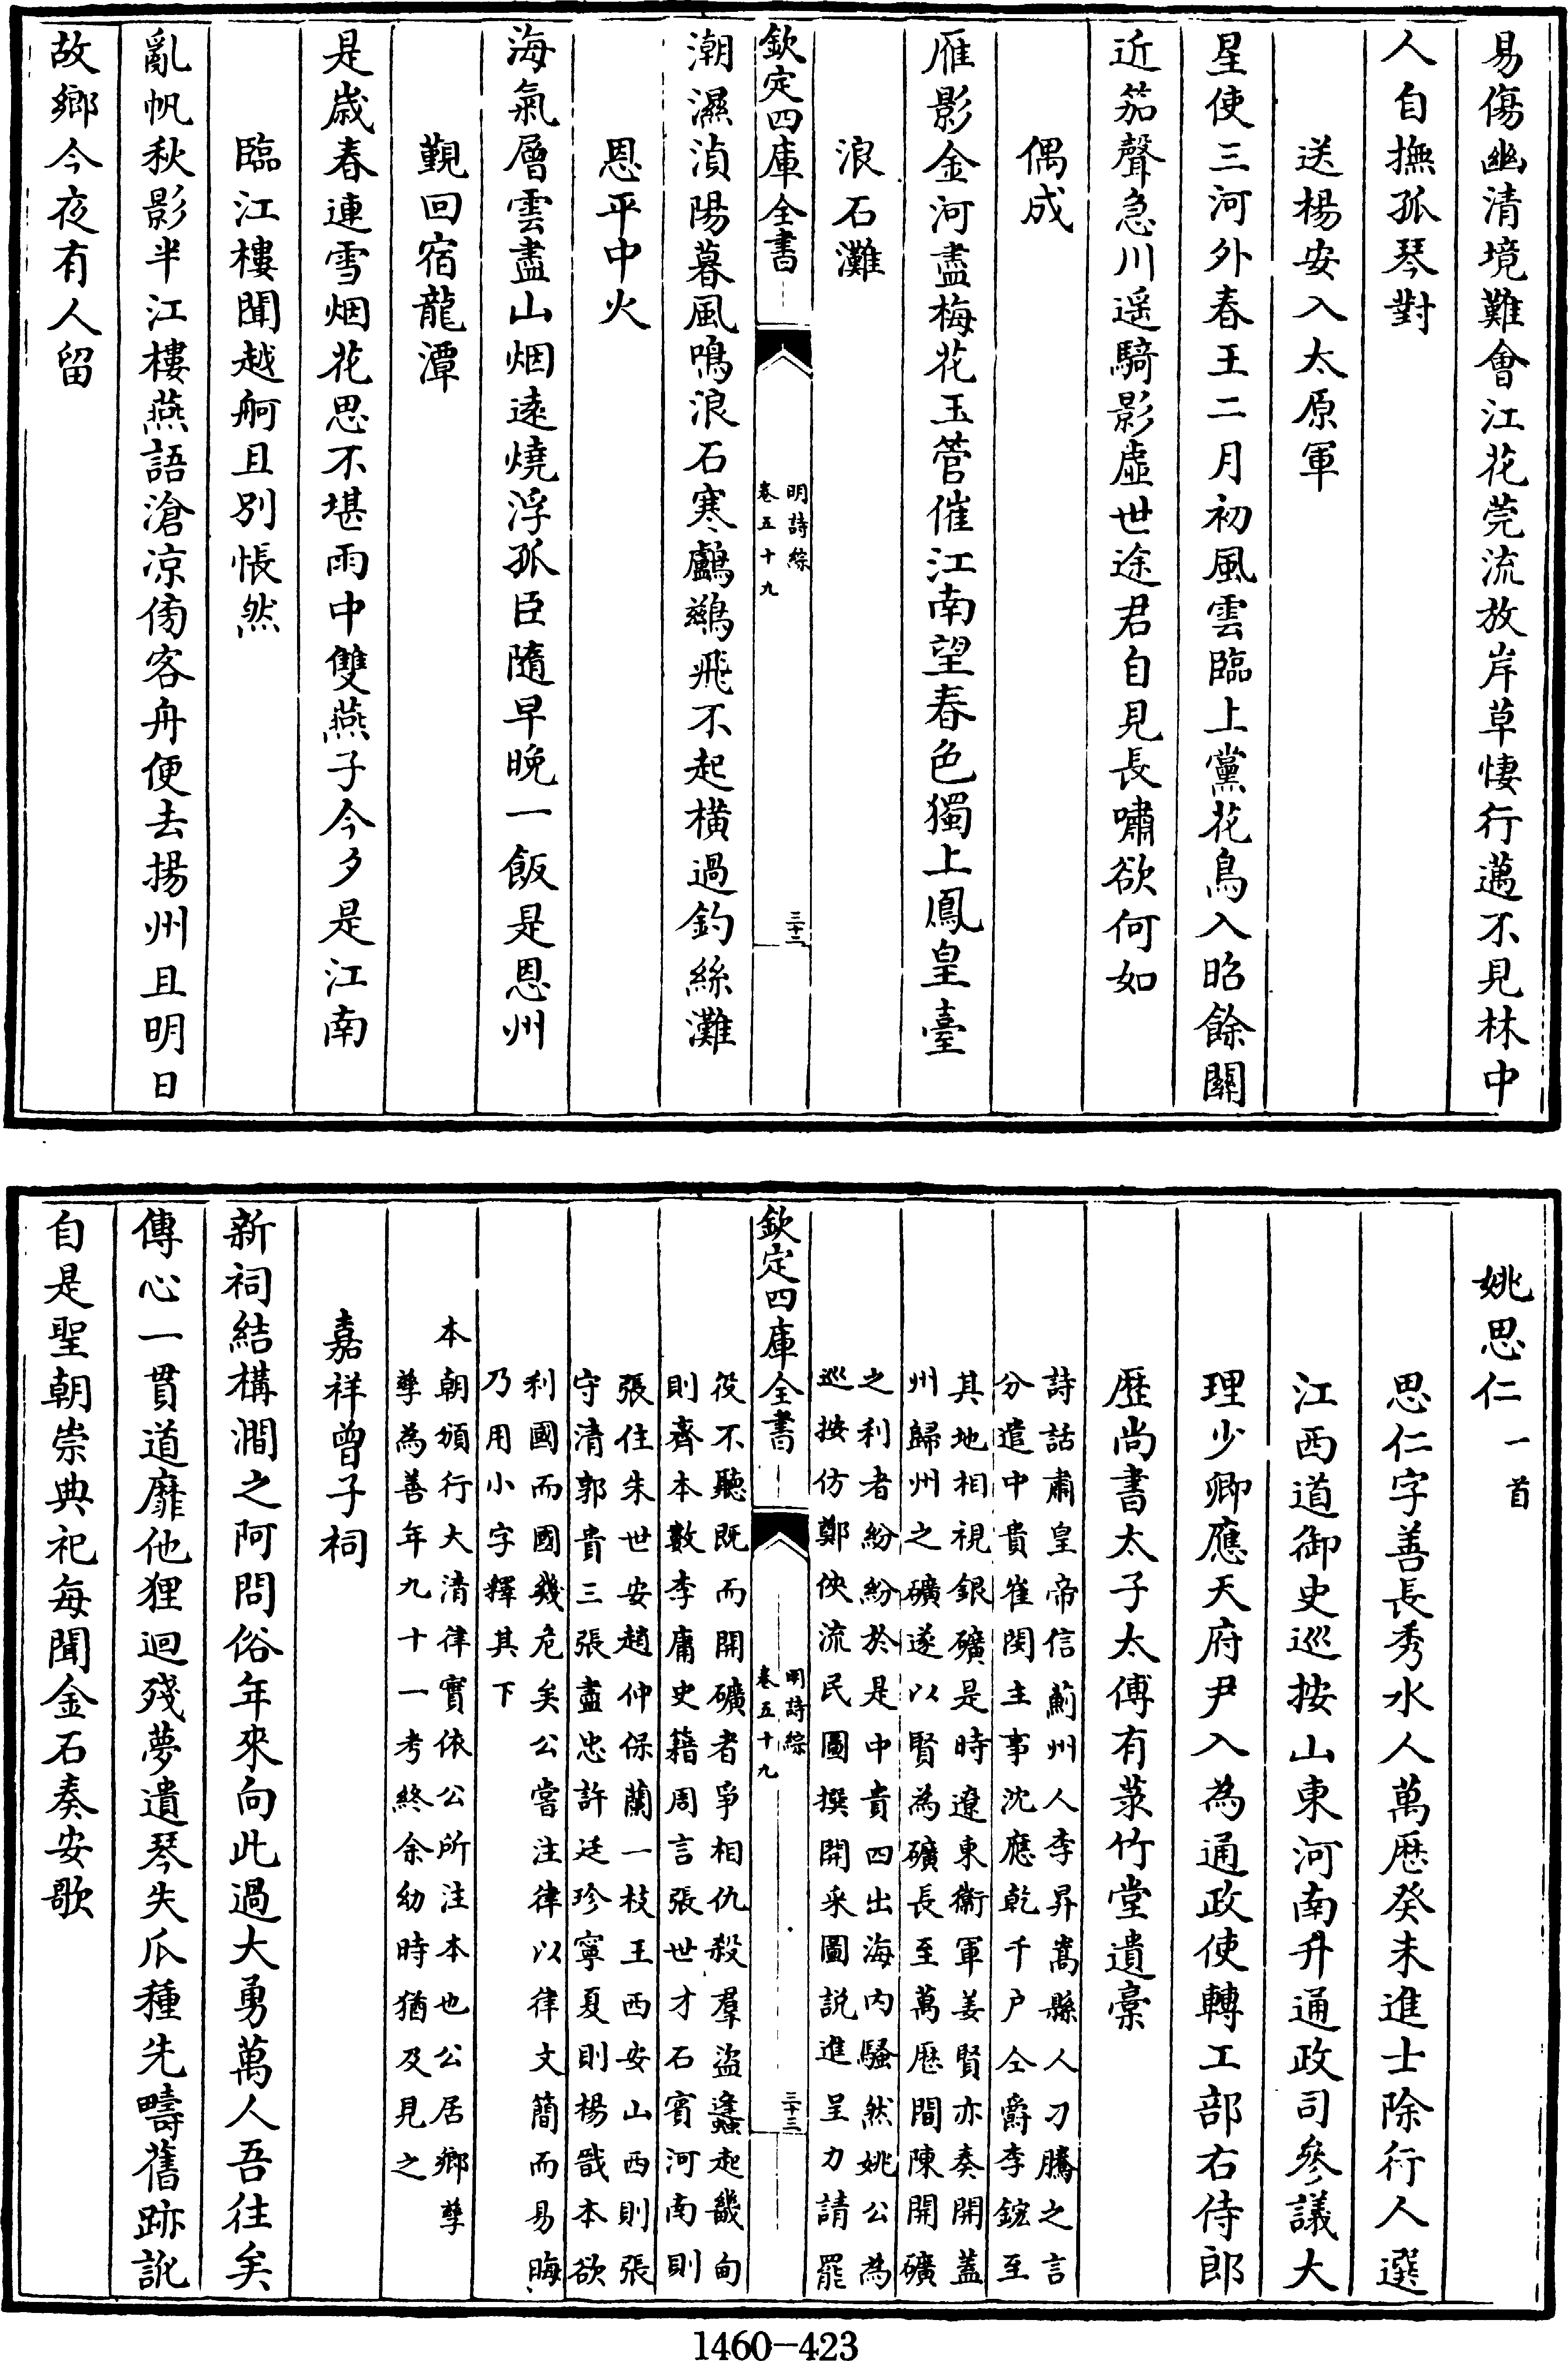 易傷幽清境難會江花莞流放岸草悽行邁不見林中
人自撫孤琴對
送楊安入太原軍
星使三河外春王二月初風雲臨上黨花鳥入昭餘關
近笳聲急川遥騎影虛世途君自見長嘯欲何如
偶成
雁影金河盡梅花玉管催江南望春色獨上鳳皇臺
浪石灘
欽定四庫全書
明詩綜
卷五十九
三十二
潮濕湞陽暮風鳴浪石寒鸕鷀飛不起橫過釣絲灘
恩平中火
海氣層雲盡山烟遠燒浮孤臣隨早晚一飯是恩州
覲回宿龍潭
是歲春連雪烟花思不堪雨中雙燕子今夕是江南
臨江樓聞越舸且別悵然
亂帆秋影半江樓燕語滄凉傍客舟便去揚州且明日
故鄉今夜有人留
姚思仁一首
思仁字善長秀水人萬厯癸未進士除行人選
江西道御史巡按山東河南升通政司參議大
理少卿應天府尹入為通政使轉工部右侍郎
歴尚書太子太傅有菉竹堂遺稾
詩話肅皇帝信薊州人李昇嵩縣人刁騰之言
分遣中貴崔閔主事沈應乾千户仝爵李鋐至
其地相視銀礦是時遼東衛軍姜賢亦奏開蓋
州歸州之礦遂以賢為礦長至萬厯間陳開礦
之利者紛紛於是中貴四出海内騷然姚公為
巡按仿鄭俠流民圖撰開采圖説進呈力請罷
欽定四庫全書
明詩綜
卷五十九
三十三
役不聽既而開礦者爭相仇殺羣盜蠭起畿甸
則齊本數李庸史籍周言張世才石賓河南則
張住朱世安趙仲保蘭一枝王西安山西則張
守清郭貴三張盡忠許廷珍寧夏則楊戩本欲
利國而國幾危矣公嘗注律以律文簡而易晦
乃用小字釋其下
本朝頒行大清律實依公所注本也公居鄉孳
孳為善年九十一考終余幼時猶及見之
嘉祥曾子祠
新祠結構澗之阿問俗年來向此過大勇萬人吾往矣
傳心一貫道靡他狸迴殘夢遺琴失瓜種先疇舊跡訛
自是聖朝崇典祀每聞金石奏安歌
1460-423